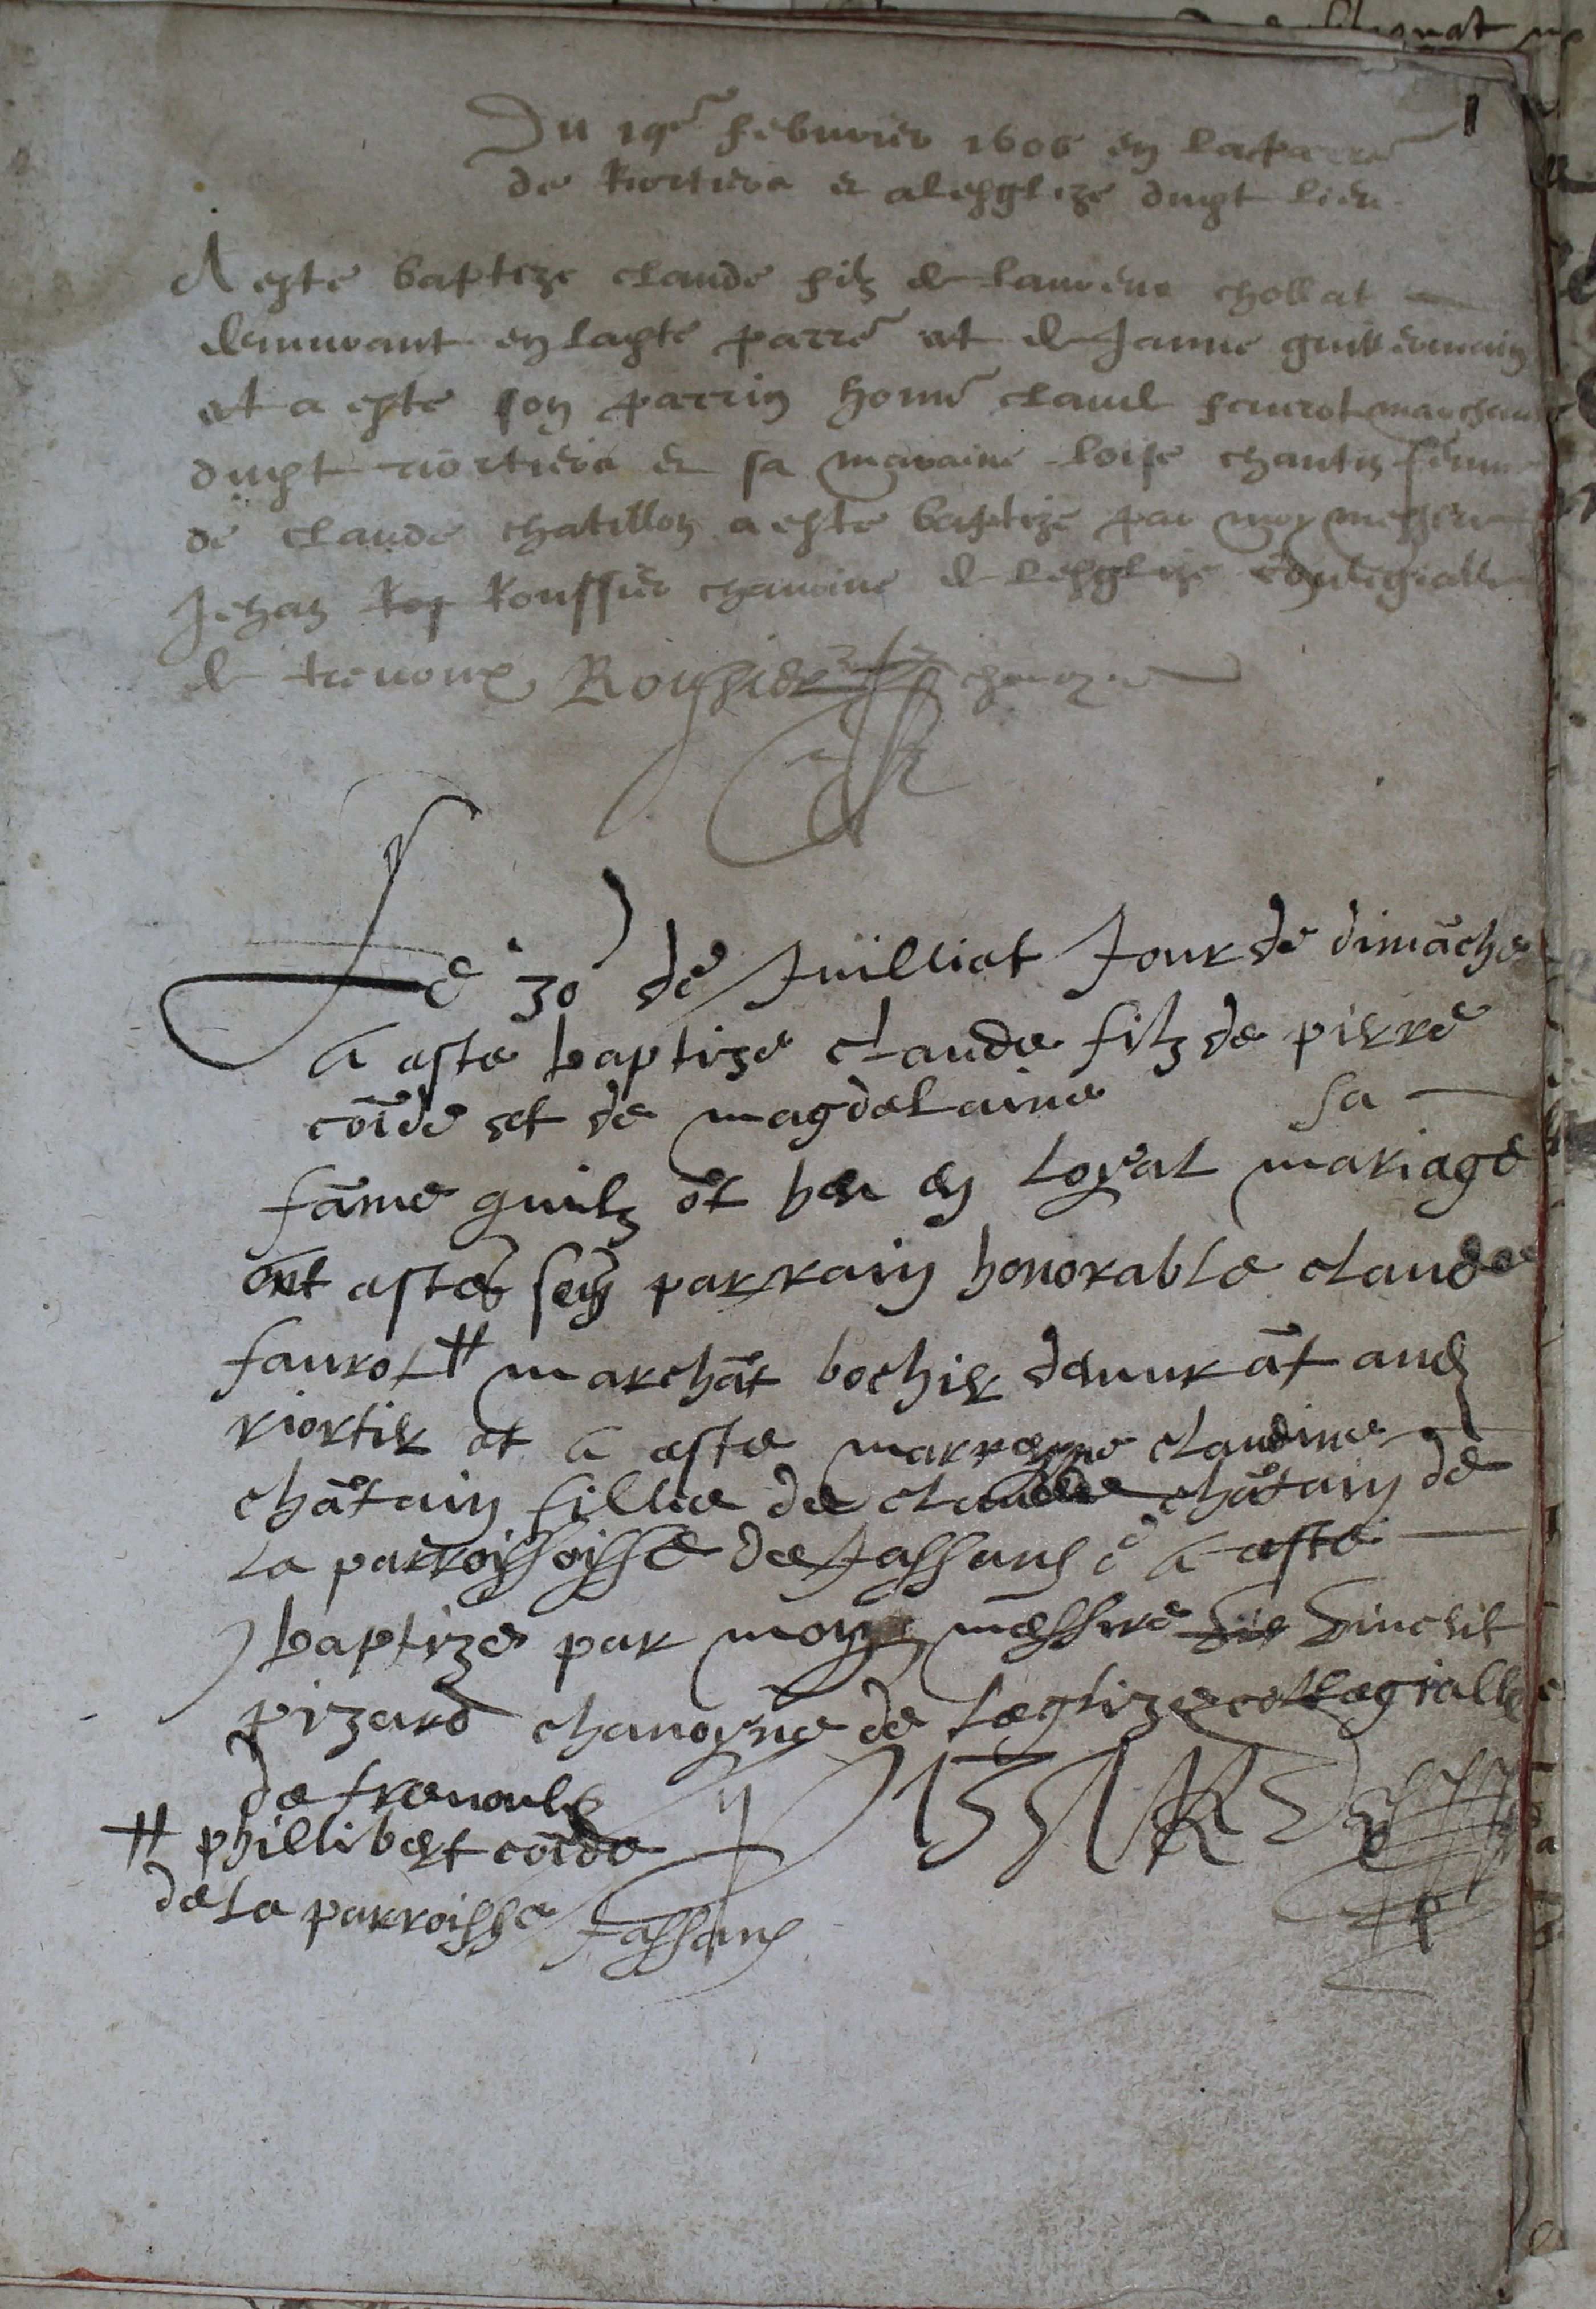 1
Du 19e febvrier 1606 en la parre
de Riortier et a lesglize dupt lieu
A este baptize claude filz de laurent chollat
demurant en lapte parre et de Janne guillermin
et a este son parrin honne claude faurot marchant
dupt riortier et sa maraine loise chantin femme
de claude chatillon a este baptize par moy messire
Jehan Roussier chanoine de lesglize collegialle
de trevoux Roussier chanoyne
Le 30 de Juilliet Jour de dimãche
A este baptize claude filz de pierre
cõide et de magdelaine sa
fãme quilz õt heu en loyal mariage
ont estes son parrain honorable claude
faurot # marchãt bochier demurãt aud
riortier et a este marreyne claudine
chãtain fillie de claude chãtain de
la parroissoisse de Jassans é a este
baptize par moy messire Vincent
pizard chanoyne de leglize collegialle
de trevoulx PIZARD
# phillibert cõide
de la parroisse Jassans